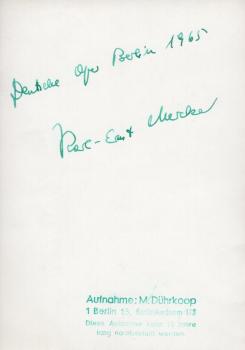 Deutsche Oper Berlin 1965
Karl-Ernst Mercker
Aufnahme: M. Dührkoop
1 Berlin 15,
Diese Aufnahme kann 10 Jahre
lang nachbestellt werden.